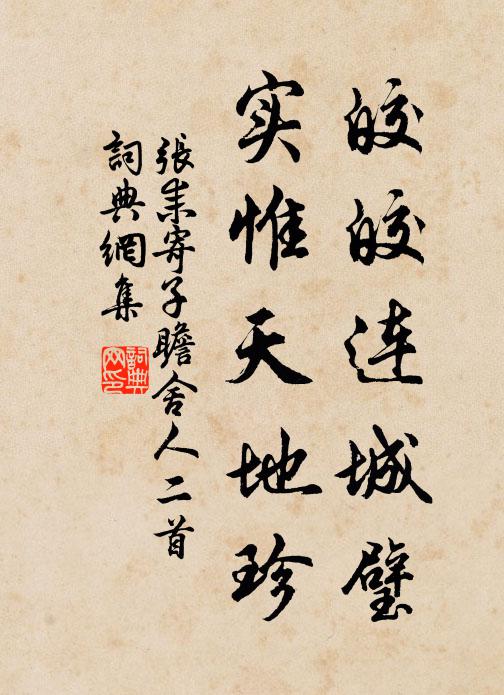 皎皎连城璧
实惟天地珍
張耒寄子瞻舍人二首
詞典網集
詞典网印